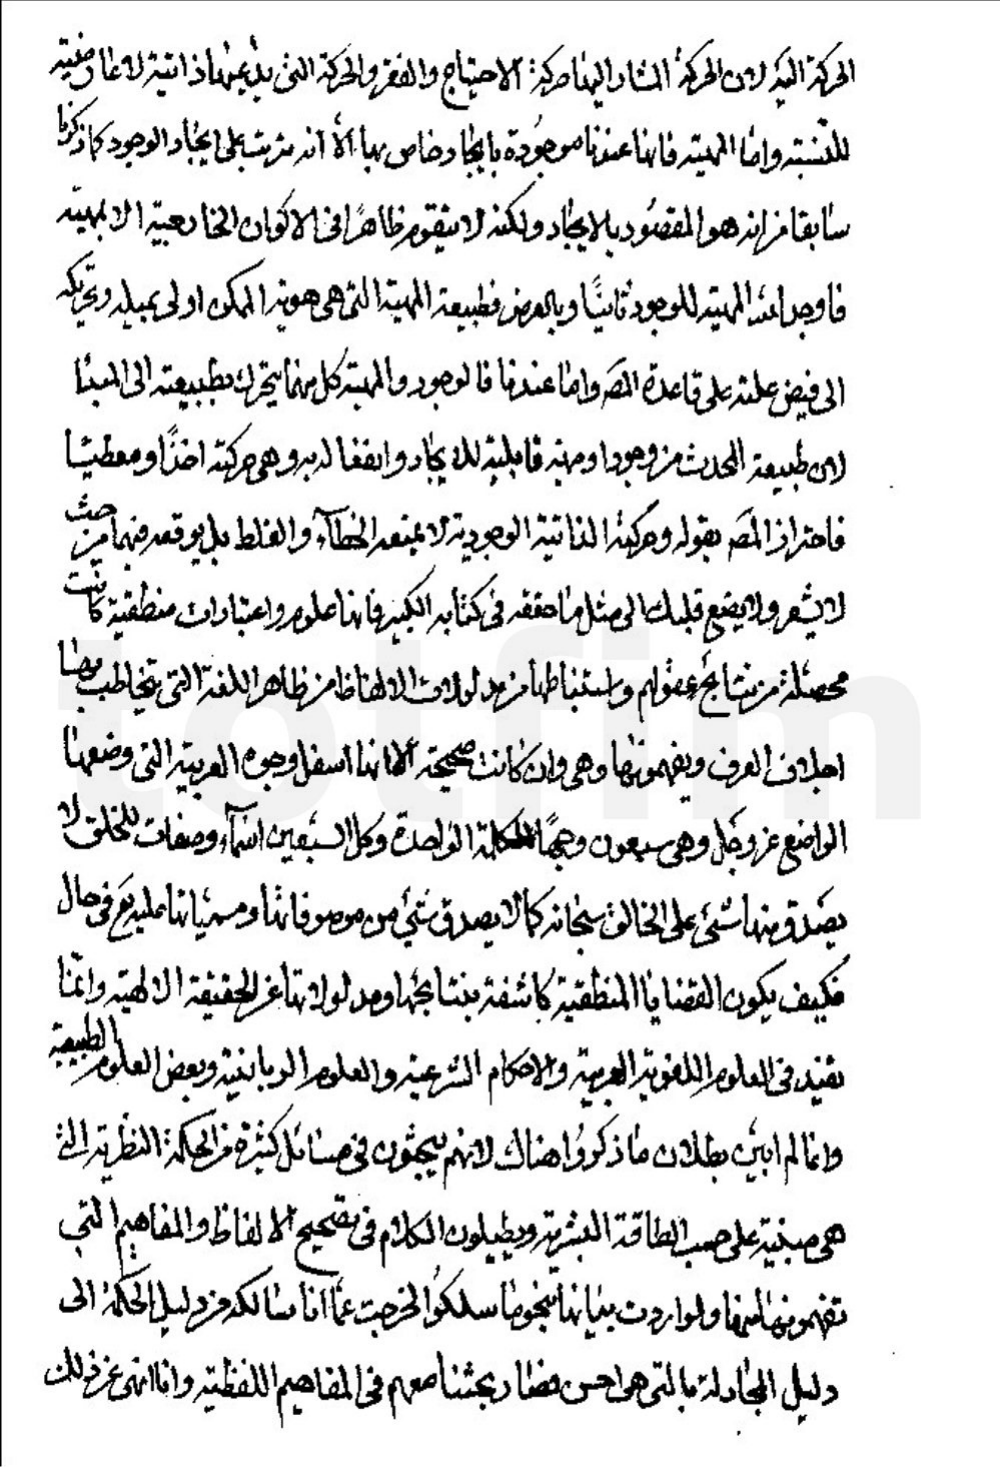 الحركة اليه لان الحركة المشار اليها حركة الاحتياج والفقر والحركة التى يدعيها ذاتية لا عارضية
للنسبة واما المهية فانها عندنا موجودة بايجاد خاص بها الا انه مترتب على ايجاد الوجود كما ذكرنا
سابقا من انه هو المقصود بالايجاد ولكنه لا يتقوم ظاهرا فى الاكوان الخارجية الا بالمهية
فاوجد الله المهية للوجود ثانيا وبالعرض فطبيعة المهية التى هى هوية الممكن اولى بميله وتحريكه
الى فيض علته على قاعدة المصـ واما عندنا فالوجود والمهية كل منهما يتحرك بطبيعته الى المبدأ
لان طبيعة المحدث من وجود او مهية قابلية للايجاد وانفعال به وهى حركته اخذا ومعطيا
فاحتراز المصـ بقوله وحركته الذاتية الوجودية لا يمنعه الخطاء والغلط بل يوقعه فيهما من حيث
لا يشعر ولا يضع قلبك الى مثل ما حققه فى كتابه الكبير فانها علوم واعتبارات منطقية كانت
محصلة من نتايج عقولهم واستنباطها من مدلولات الالفاظ من ظاهر اللغة التى يتخاطب بها
اجلاف العرف ويفهمونها وهى وان كانت صحيحة الا انها اسفل وجوه العربية التى وضعها
الواضع عز وجل وهى سبعون وجها للكلمة الواحدة وكل السبعين اسماء وصفات للخلق لا
يصدق منها شئ على الخالق سبحانه كما لا يصدق شئ من موصوفاتها ومسمياتها عليه تع فى حال
فكيف يكون القضايا المنطقية كاشفة بنتايجها ومدلولاتها عن الحقيقة الالهية وانما
تفيد فى العلوم اللغوية العربية والاحكام الشرعية والعلوم الربانية وبعض العلوم الطبيعية
وانما لم ابين بطلان ما ذكروا هناك لانهم يبحثون فى مسائل كثيرة من الحكمة النظرية التى
هى مبنية على حسب الطاقة البشرية ويطيلون الكلام فى تصحيح الالفاظ والمفاهيم التى
تفهمونها منها ولو اردت بيانها بنحو ما سلكوا لخرجت عما انا سالكه من دليل الحكمة الى
دليل المجادلة بالتى هى احسن فصار بحثنا معهم فى المفاهيم اللفظية وانا انهى عن ذلك